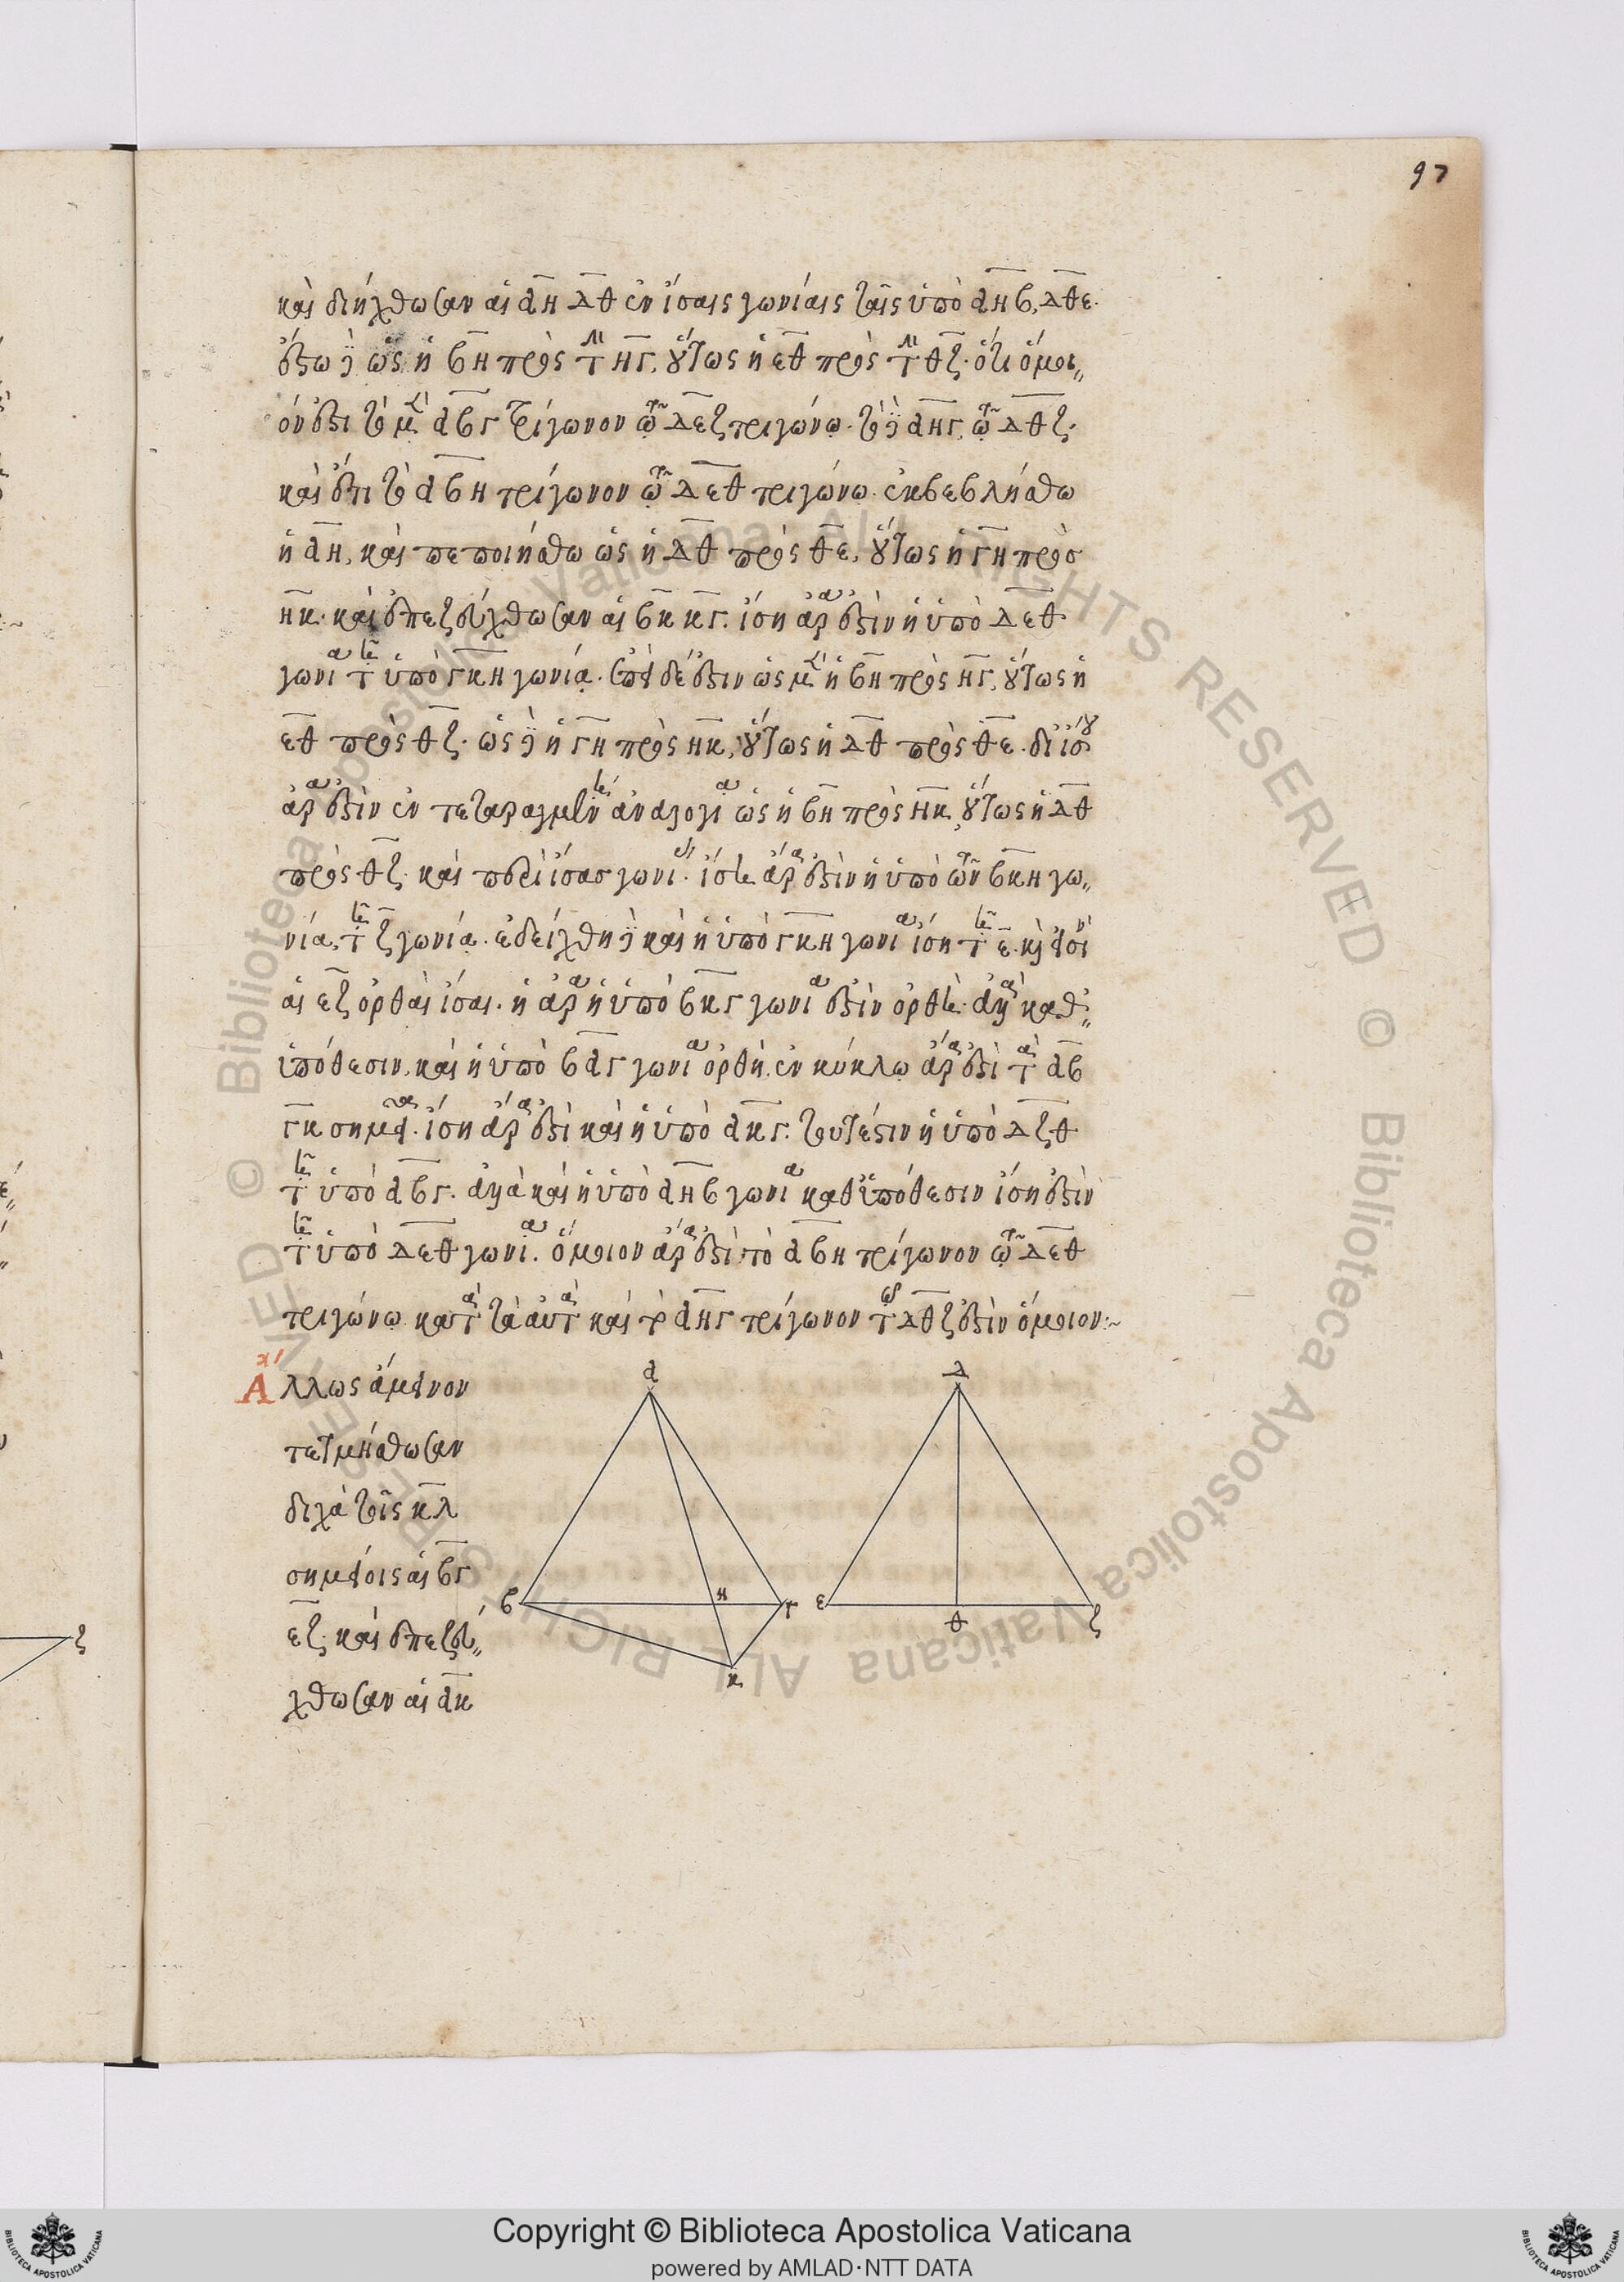 97
καὶ διήχθωσαν αἱ ΑΗ ΔΘ ἐν ἴσαις γωνίαις ταῖς ὑπὸ ΑΗΒ, ΔΘΕ.
ἔστω δὲ ὡς ἡ ΒΗ πρὸς τὴν ΗΓ, οὕτως ἡ ΕΘ πρὸς τὴν ΘΖ. ὅτι ὅμοι„
όν ἐστι τὸ μὲν ΑΒΓ τρίγωνον τῷ ΔΕΖ τριγώνῳ. τὸ δὲ ΑΗΓ, τῷ ΔΘΖ.
καὶ ἔτι τὸ ΑΒΗ τρίγωνον τῷ ΔΕΘ τριγώνῳ. ἐκβεβλήσθω
ἡ ΑΗ, καὶ πεποιήσθω ὡς ἡ ΔΘ πρὸς ΘΕ, οὕτως ἡ ΓΗ πρὸς
ΗΚ. καὶ ἐπεζεύχθωσαν αἱ ΒΚ ΚΓ. ἴση ἄρα ἐστὶν ἡ ὑπὸ ΔΕΘ
γωνία τῇ ὑπὸ ΓΚΗ γωνίᾳ. ἐπεὶ δέ ἐστιν ὡς μὲν ἡ ΒΗ πρὸς ΗΓ, οὕτως ἡ
ΕΘ πρὸς ΘΖ. ὡς δὲ ἡ ΓΗ πρὸς ΗΚ, οὕτως ἡ ΔΘ πρὸς ΘΕ. δι ἴσου
ἄρα ἐστὶν ἐν τεταραγμένῃ ἀναλογίᾳ ὡς ἡ ΒΗ πρὸς ΗΚ, οὕτως ἡ ΔΘ
πρὸς ΘΖ. καὶ περὶ ἴσας γωνίας. ἴση ἄρα ἐστὶν ἡ ὑπὸ τῶν ΒΚΗ γω„
νία, τῇ Ζ γωνίᾳ. ἐδείχθη δὲ καὶ ἡ ὑπὸ ΓΚΗ γωνία ἴση τῇ Ε. καὶ εἰσὶν
αἱ ΕΖ ὀρθαὶ ἴσαι. ἡ ἄρα ἡ ὑπὸ ΒΚΓ γωνία ἐστὶν ὀρθή. ἀλλὰ καθ„
ὑπόθεσιν, καὶ ἡ ὑπὸ ΒΑΓ γωνία ὀρθή. ἐν κύκλῳ ἄρα ἐστὶ τὰ ΑΒ
ΓΚ σημεῖα. ἴση ἄρα ἐστὶ καὶ ἡ ὑπὸ ΑΚΓ. τουτέστιν ἡ ὑπὸ ΔΖΘ
τῇ ὑπὸ ΑΒΓ. ἀλλὰ καὶ ἡ ὑπὸ ΑΗΒ γωνία καθ ὑπόθεσιν ἴση ἐστὶν
τῇ ὑπὸ ΔΕΘ γωνίᾳ. ὅμοιον ἄρα ἐστὶ τὸ ΑΒΗ τρίγωνον τῷ ΔΕΘ
τριγώνῳ κατὰ τὰ αὐτὰ καὶ τὸ ΑΗΓ τρίγωνον τῷ ΔΘΖ ἐστὶν ὅμοιον:~
Ἄλλως ἄμεινον
τετμήσθωσαν
δίχα τοῖς ΚΛ
σημείοις αἱ ΒΓ
ΕΖ. καὶ ἐπεζεύ„
χθωσαν αἱ ΑΚ
Α Δ
Β Η Γ Ε Θ Ζ
Κ
ζ
© Biblioteca Apostolica Vaticana ALL RIGHTS RESERVED © Biblioteca Apostolica Vaticana ALL RIGHTS RESERVED
Copyright © Biblioteca Apostolica Vaticana
powered by AMLAD·NTT DATA
BIBLIOTECA APOSTOLICA VATICANA
BIBLIOTECA APOSTOLICA VATICANA